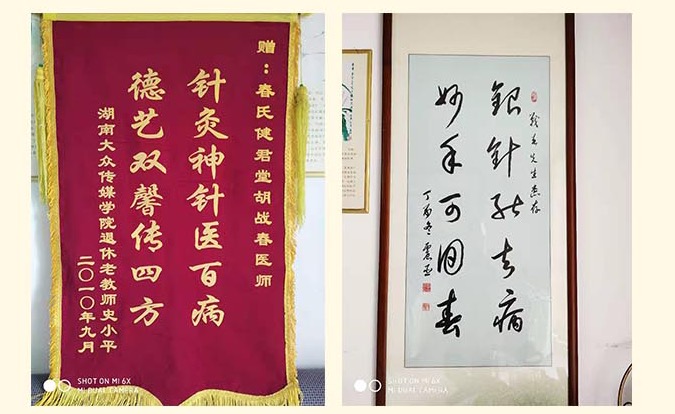 赠：春氏健君堂胡战春医师
针灸神针医百病
德艺双馨传四方
湖南大众传媒学院退休老教师史小平
二〇一〇年九月
SHOT ON MI 6X
MI DUAL CAMERA
战春先生惠存
銀针能去病
妙手可回春
丁酉冬震亚
SHOT ON MI 6X
MI DUAL CAMERA